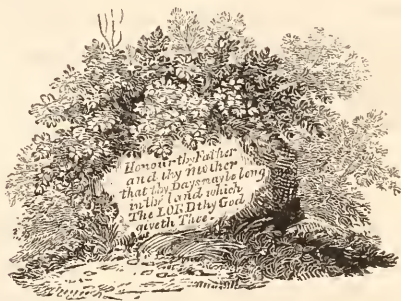 Honour thy Father
and thy mother
that thy Days may be long
in the land which
The LORD thy God
giveth Thee